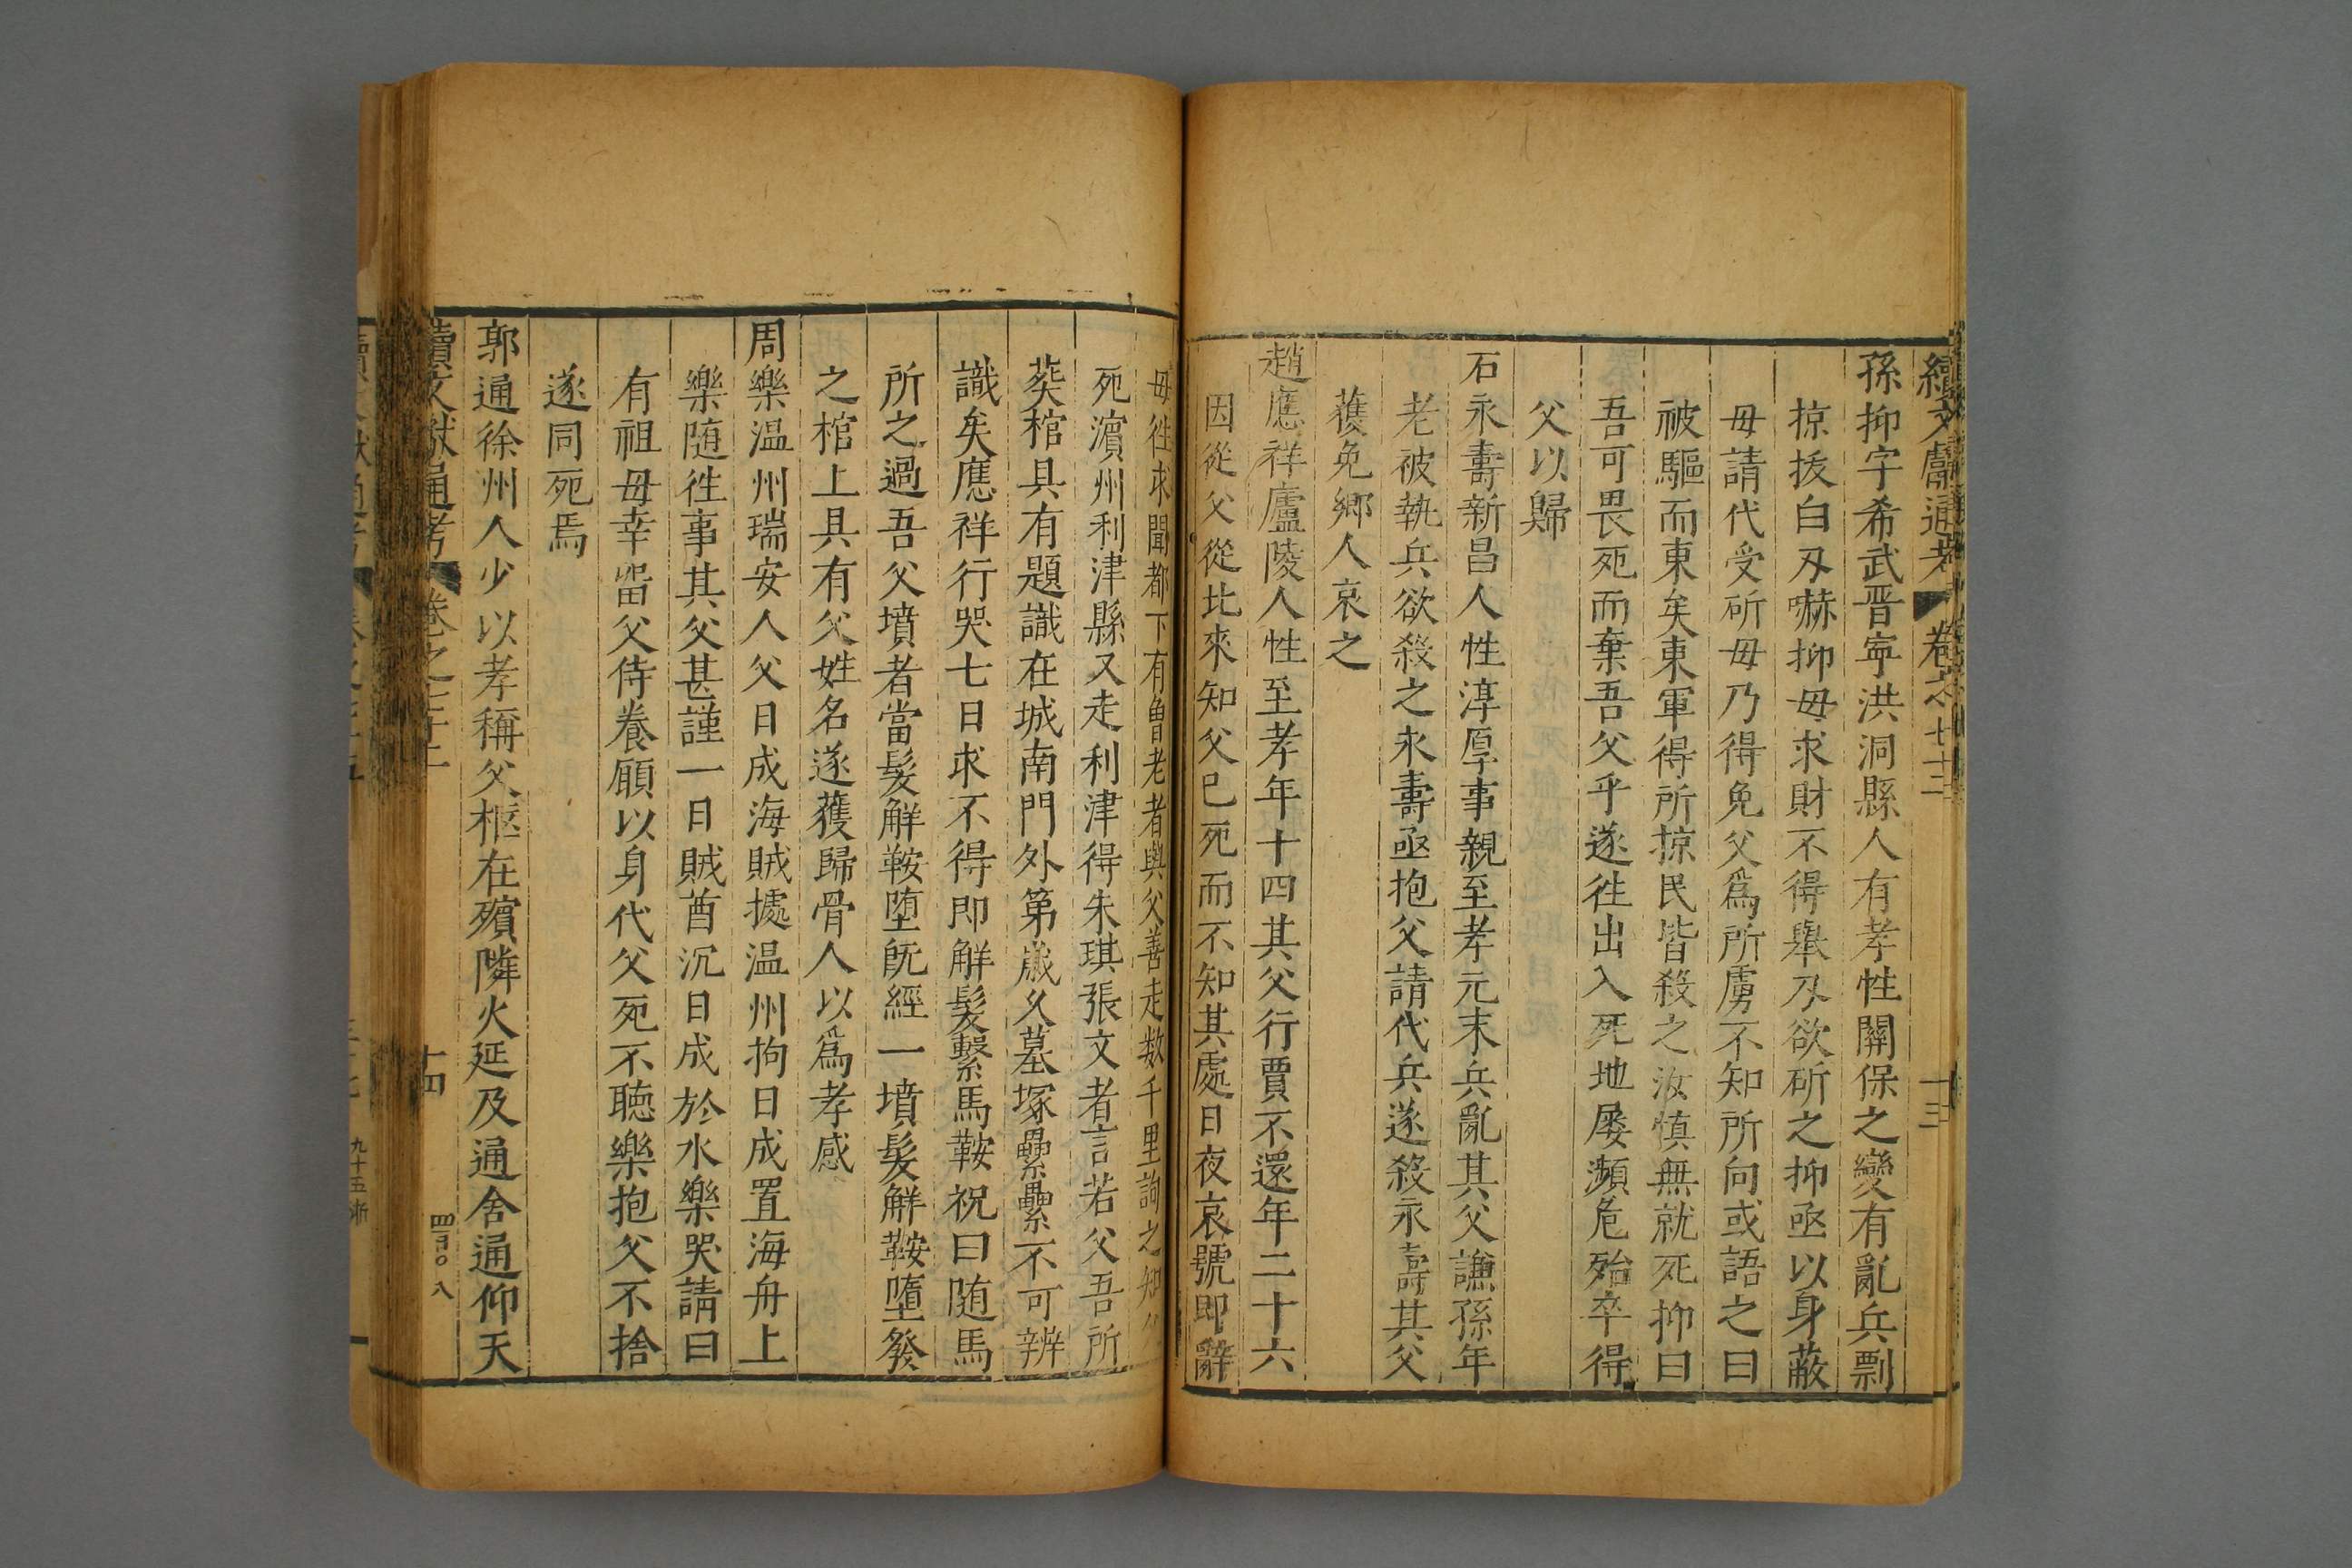 續文獻通考 卷之七十二 十三
孫抑字希武晋寧洪洞縣人有孝性關保之變有亂兵剽
掠拔白刄嚇抑母求財不得舉刄欲斫之抑亟以身蔽
母請代受斫母乃得免父爲所虜不知所向或語之曰
被驅而東矣東軍得所掠民皆殺之汝慎無就死抑曰
吾可畏死而棄吾父乎遂徃出入死地屡瀕危殆卒得
父以歸
石永壽新昌人性淳厚事親至孝元末兵亂其父謙孫年
老被執兵欲殺之永壽亟抱父請代兵遂殺永壽其父
獲免鄉人哀之
趙應祥廬陵人性至孝年十四其父行賈不還年二十六
因從父從北來知父已死而不知其處日夜哀號即辭
母徃求聞都下有曽老者與父善走数千里詢之知父
死濵州利津縣又走利津得朱琪張文者言若父吾所
葬棺具有題識在城南門外第歲久墓塚纍纍不可辨
識矣應祥行哭七日求不得即解髮繫馬鞍祝曰随馬
所之過吾父墳者當髮解鞍堕既經一墳髮解鞍墮發
之棺上具有父姓名遂獲歸骨人以爲孝感
周樂温州瑞安人父日成海賊據温州拘日成置海舟上
樂随徃事其父甚謹一日賊酋沉日成於水樂哭請曰
有祖母幸畱父侍養願以身代父死不聴樂抱父不捨
遂同死焉
郭通徐州人少以孝稱父柩在殯隣火延及通舍通仰天
續文獻通考 卷之七十二 十四 八